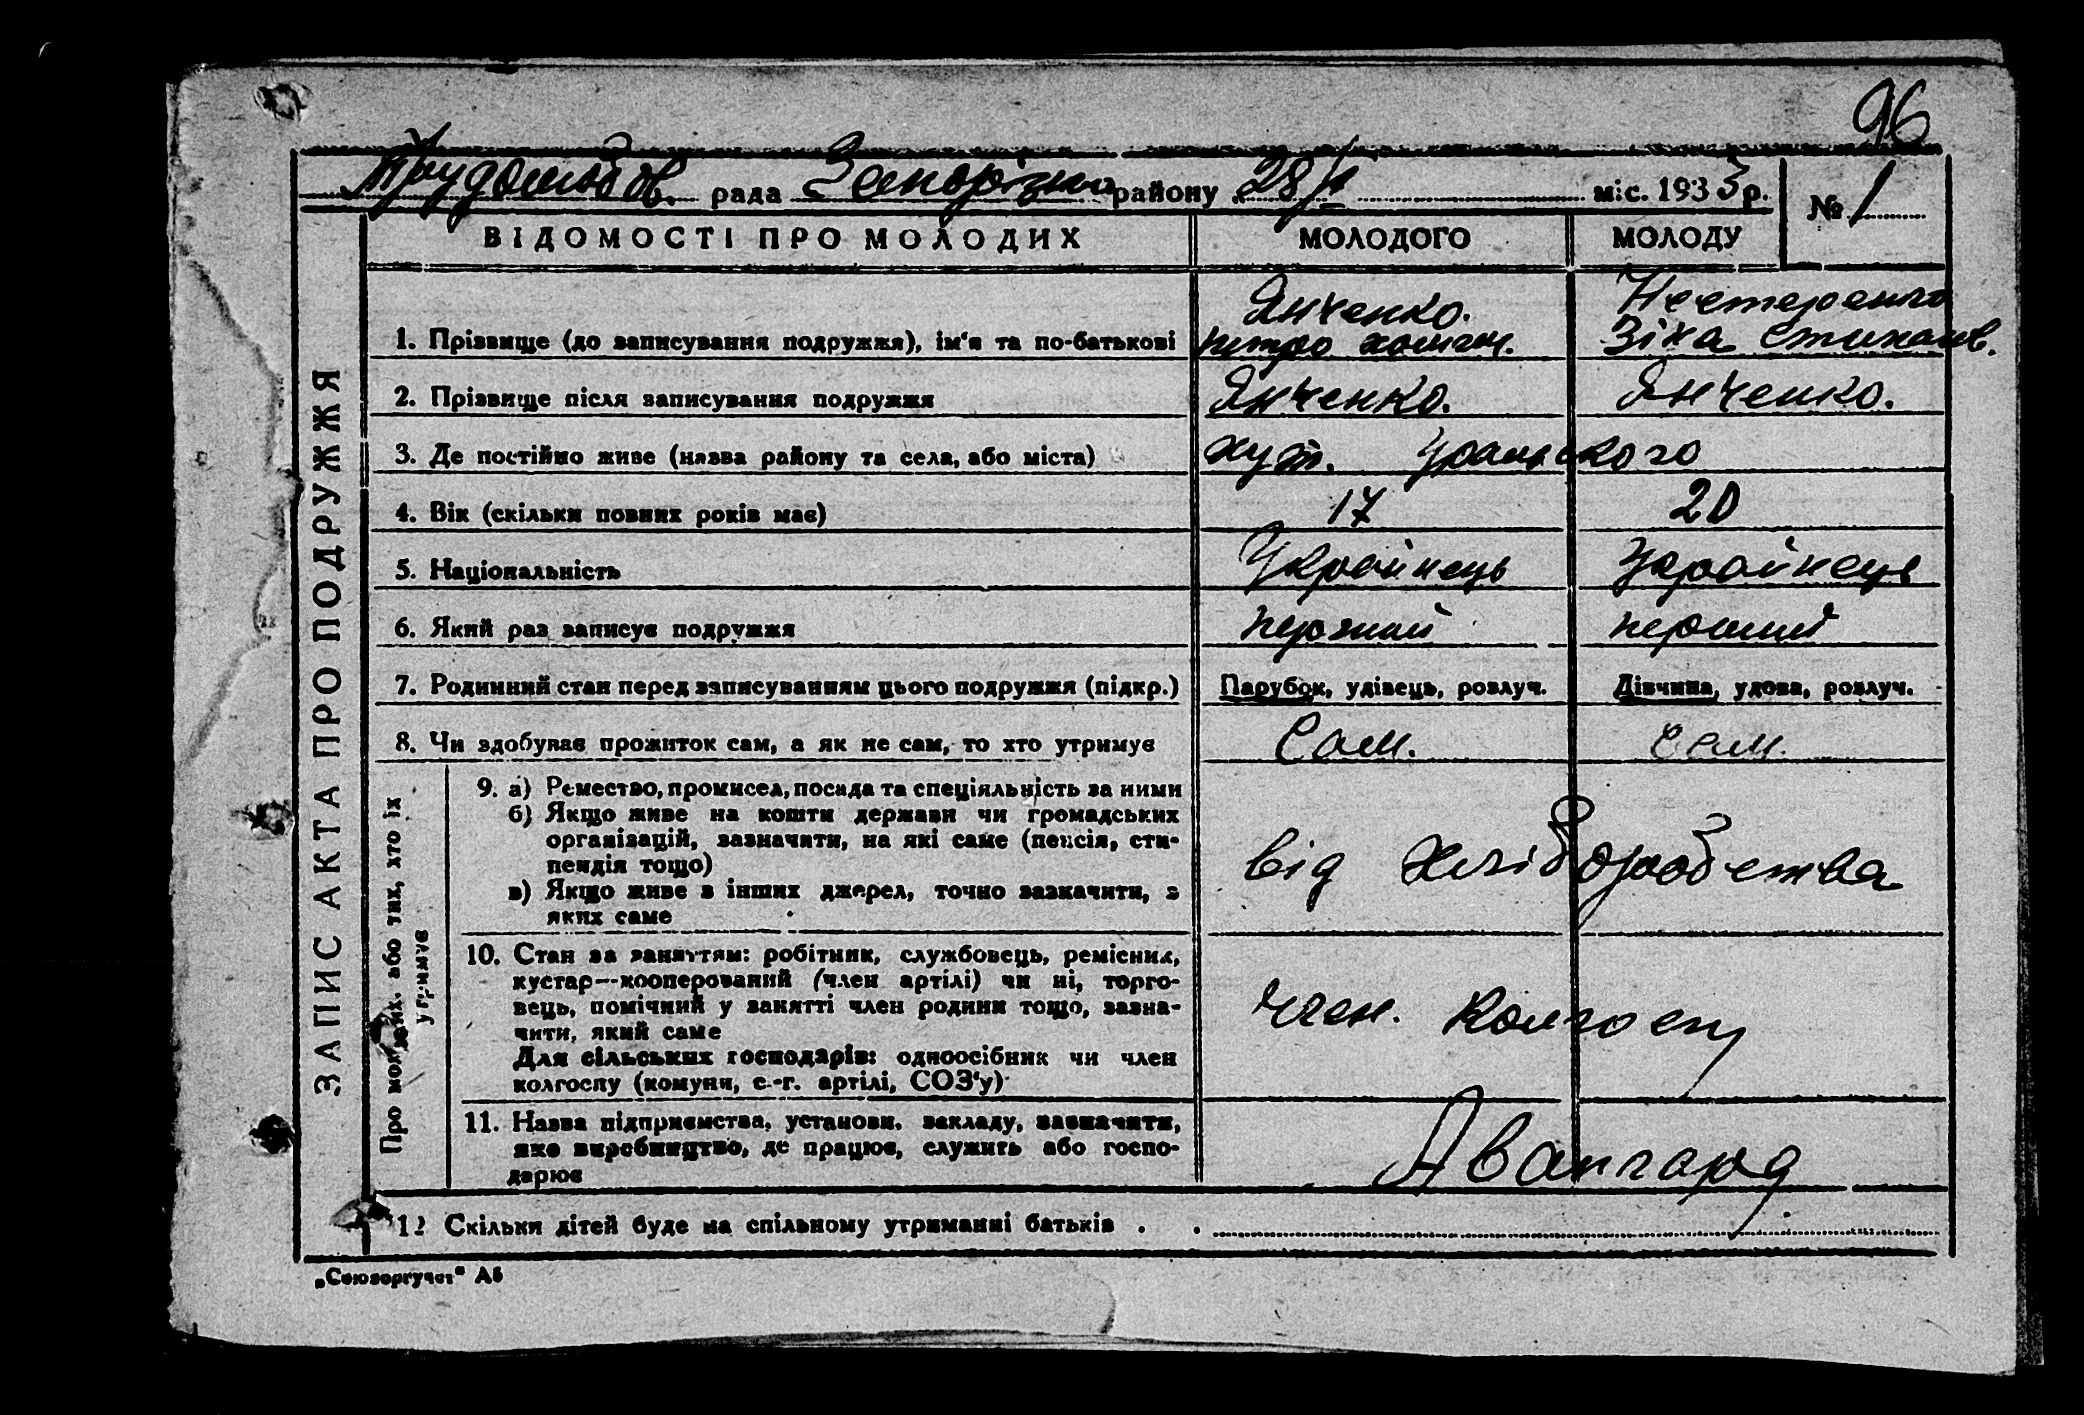 96
Трудолюбов. рада Запорізького району 28/I міс. 1933 р. № 1
ЗАПИС АКТА ПРО ПОДРУЖЖЯ
ВІДОМОСТІ ПРО МОЛОДИХ МОЛОДОГО МОЛОДУ
Янченко. Нестеренко
1. Прізвище (до записування подружжя), ім'я та по-батькові Петро Зіна
2. Прізвище після записування подружжя Янченко. Янченко.
3. Де постійно живе (назва району та села, або міста) хут.
4. Вік (скільки повних років має) 17 20
5. Національність Українець Українець
6. Який раз записує подружжя первий перший
7. Родинний стан перед записуванням цього подружжя (підкр.) Парубок, удівець, розлуч. Дівчина, удова, розлуч.
8. Чи здобуває прожиток сам, а як не сам, то хто утримує Сам. сам.
Про молодих, або тих, хто їх
утримує
9. а) Ремество, промисел, посада та спеціяльність за ними
б) Якщо живе на кошти держави чи громадських
організацій, зазначити, на які саме (пенсія, сти-
пендія тощо)
в) Якщо живе з інших джерел, точно зазначити, з
яких саме
від хліборобства
10. Стан за заняттям: робітник, службовець, ремісник,
кустар—кооперований (член артілі) чи ні, торго-
вець, помічний у занятті член родини тощо, зазна-
чити, який саме
Для сільських господарів: одноосібник чи член
колгоспу (комуни, с.-г. артілі, СОЗ'у)
член. колгоспу
11. Назва підприємства, установи, закладу, зазначити,
яке виробництво, де працює, служить або госпо-
дарює
Авангард
12 Скільки дітей буде на спільному утриманні батьків . .
„Союзоргучет" А5